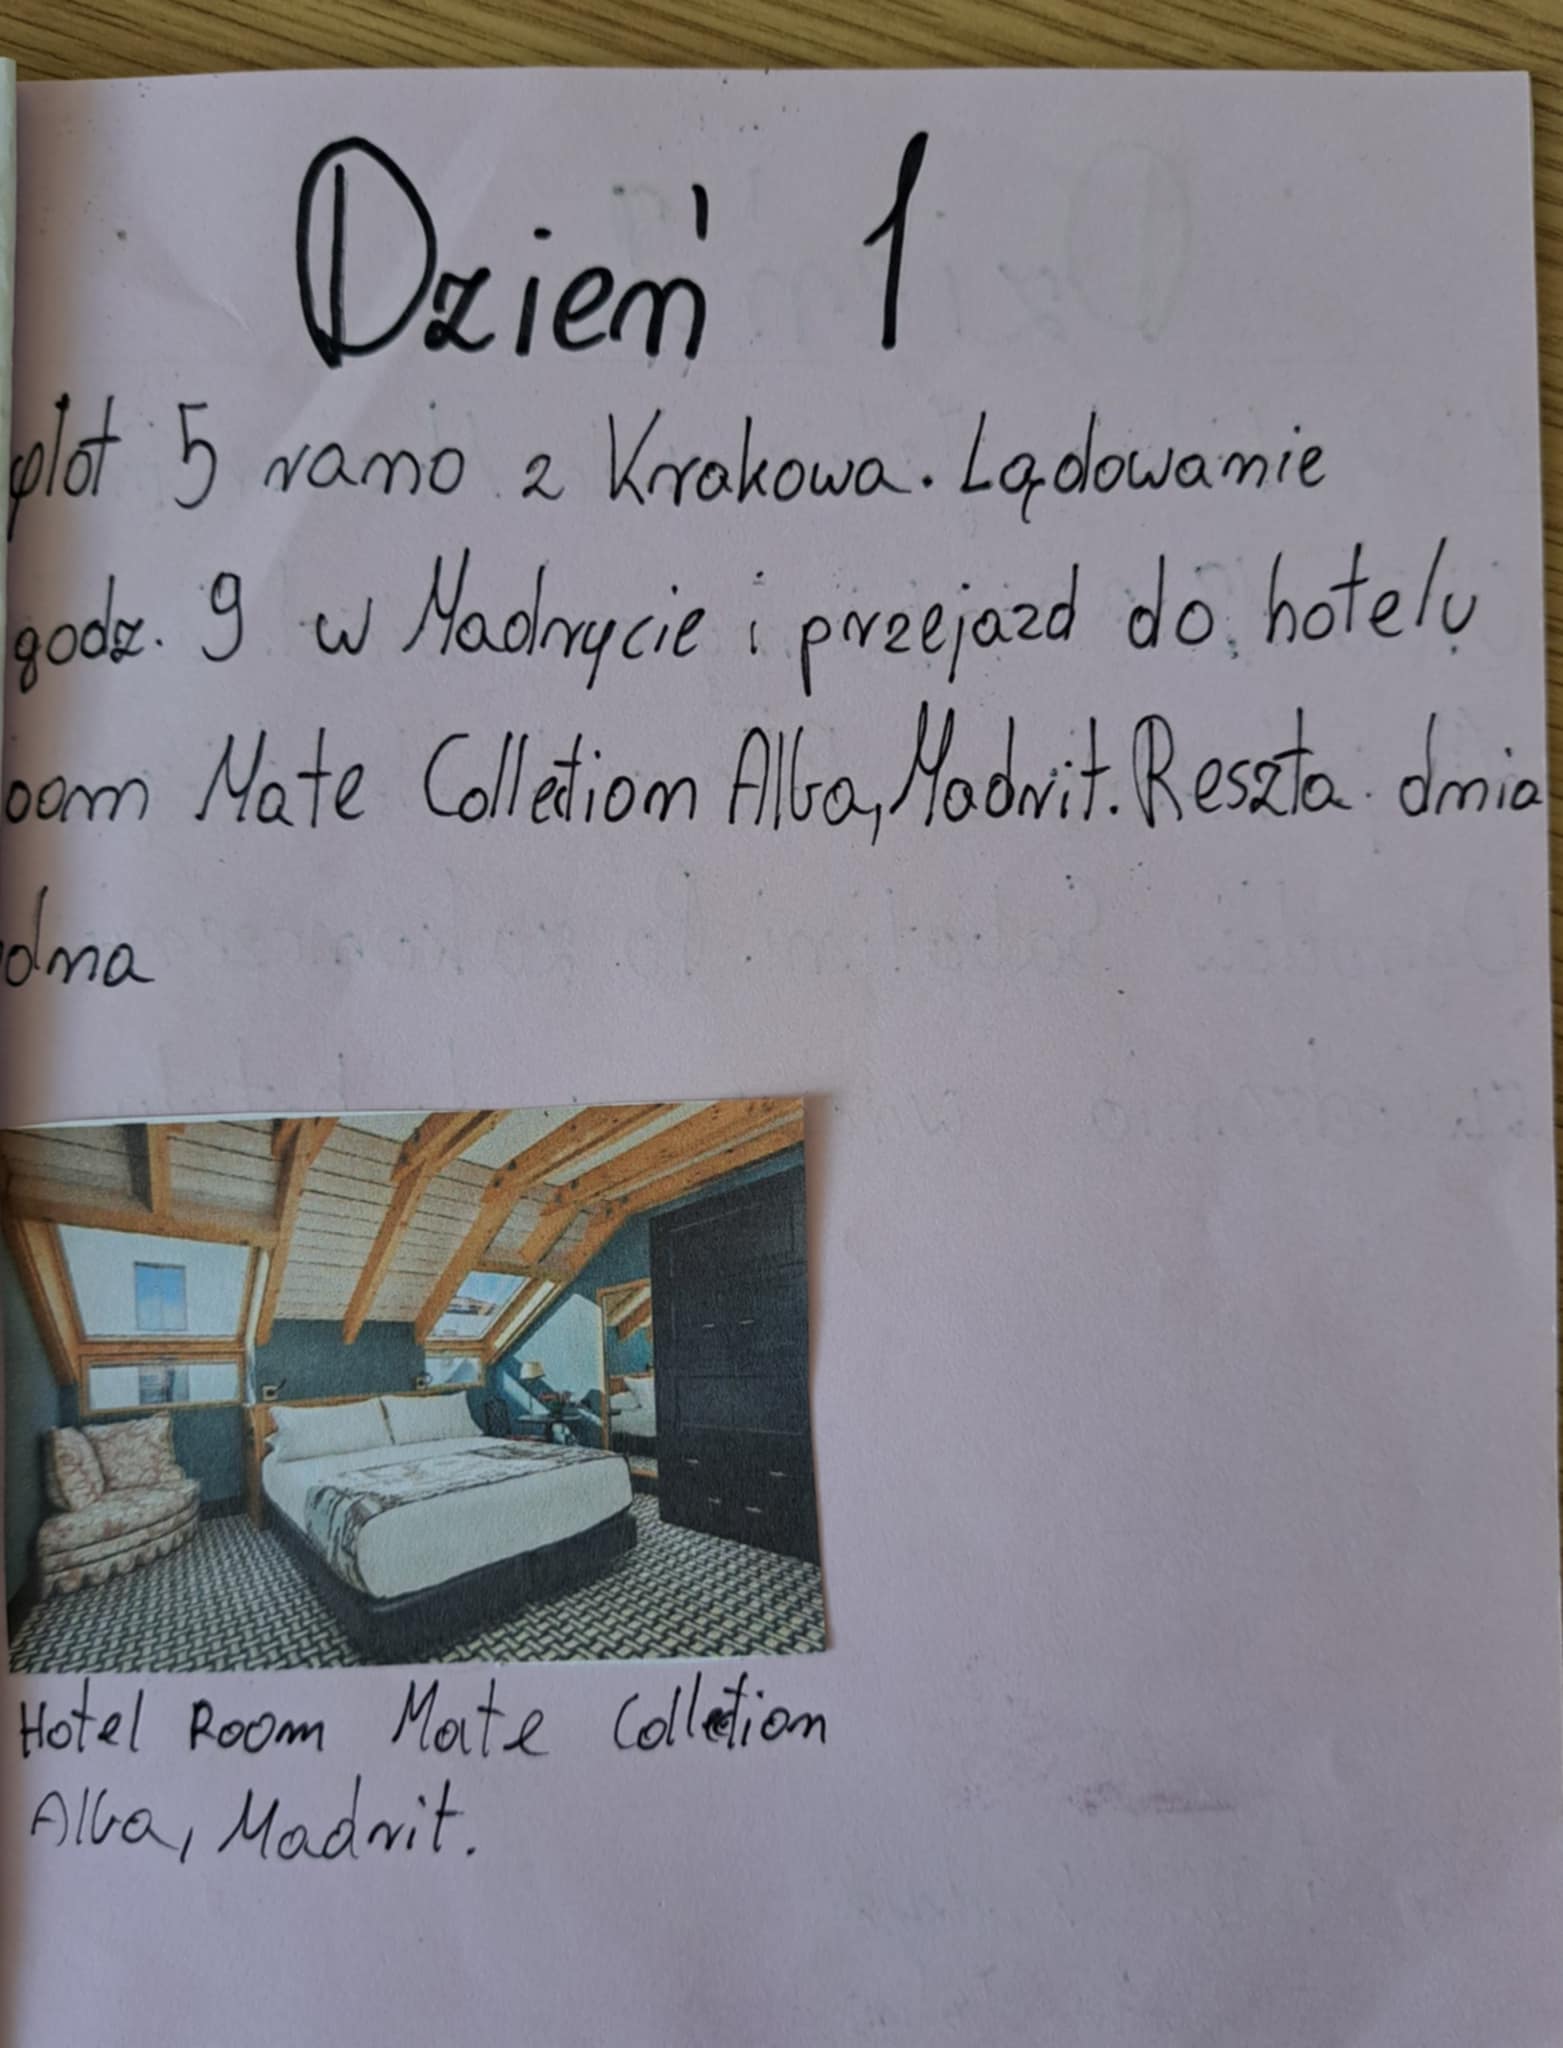 Dzień 1
plot 5 rano z Krakowa. Lądowanie
godz. 9 w Madrycie i przejazd do hotelu
oom Mate Colletion Alba, Madrit. Reszta dnia
olna
Hotel Room Mate Colletion
Alba, Madrit.